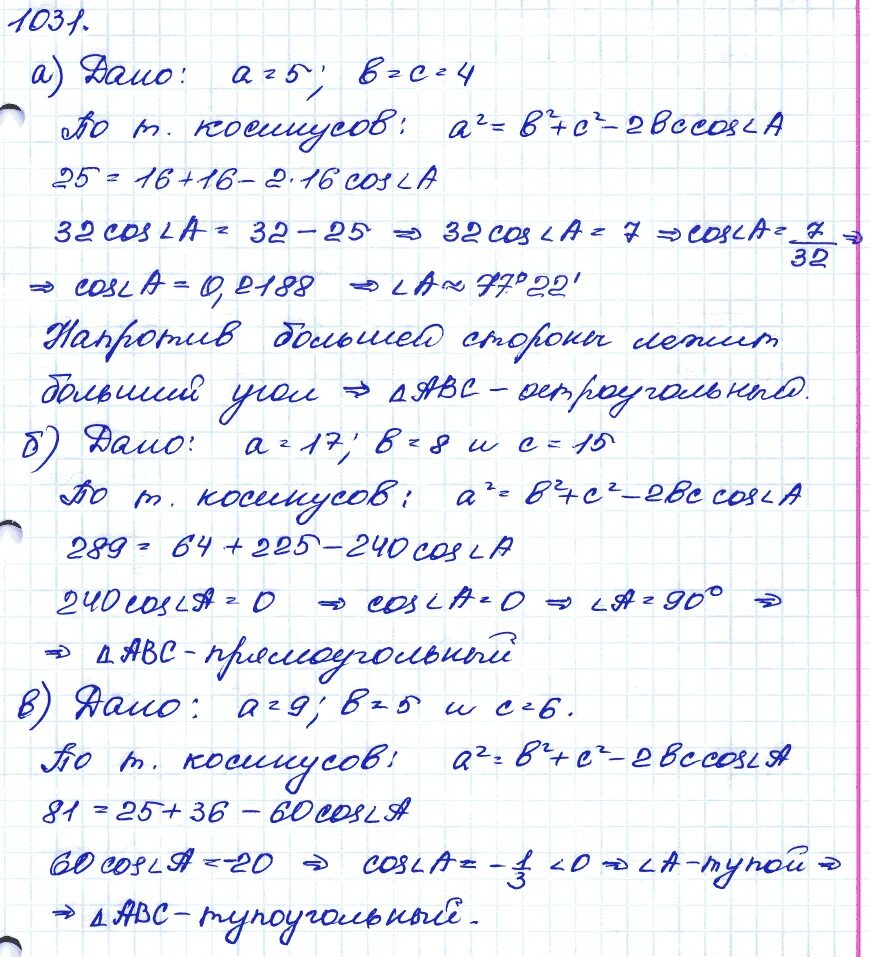 1031.
а) Дано: a = 5; в = с = 4
По т. косинусов: a² = в² + с² - 2вс cos∠A
25 = 16 + 16 - 2·16 cos∠A
32 cos∠A = 32 - 25 ⇒ 32 cos∠A = 7 ⇒ cos∠A = 7/32 ⇒
⇒ cos∠A = 0,2188 ⇒ ∠A ≈ 77°22'
Напротив большей стороны лежит
больший угол ⇒ △ABC - остроугольный.
б) Дано: a = 17; в = 8 и с = 15
По т. косинусов: a² = в² + с² - 2вс cos∠A
289 = 64 + 225 - 240 cos∠A
240 cos∠A = 0 ⇒ cos∠A = 0 ⇒ ∠A = 90° ⇒
⇒ △ABC - прямоугольный
в) Дано: a = 9; в = 5 и с = 6.
По т. косинусов: a² = в² + с² - 2вс cos∠A
81 = 25 + 36 - 60 cos∠A
60 cos∠A = -20 ⇒ cos∠A = -1/3 < 0 ⇒ ∠A - тупой ⇒
⇒ △ABC - тупоугольный.